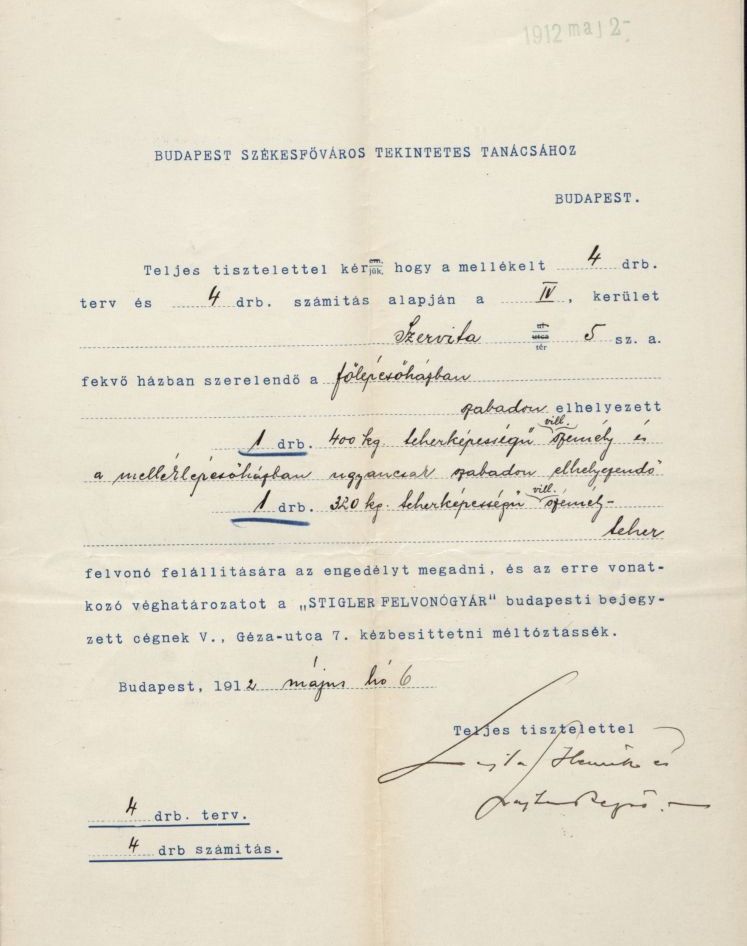 1912 maj 2-
BUDAPEST SZÉKESFŐVÁROS TEKINTETES TANÁCSÁHOZ
BUDAPEST.
Teljes tisztelettel kér em. jük. hogy a mellékelt 4 drb.
terv és 4 drb. számitás alapján a IV, kerület
Szervita ut utca tér 5 sz. a.
fekvő házban szerelendő a főlépcsőházban
szabadon elhelyezett
1 drb. 400 kg. teherképességű vill. személy és
a mellérlépcsőházban ugyancsak szabadon elhelyezendő
1 drb. 320 kg. teherképességű vill. személy-
teher
felvonó felállitására az engedélyt megadni, és az erre vonat-
kozó véghatározatot a „STIGLER FELVONÓGYÁR" budapesti bejegy-
zett cégnek V., Géza-utca 7. kézbesittetni méltóztassék.
Budapest, 1912 május hó 6
Teljes tisztelettel
Lajta Henrik és
Lajta Rezső.
4 drb. terv.
4 drb számitás.